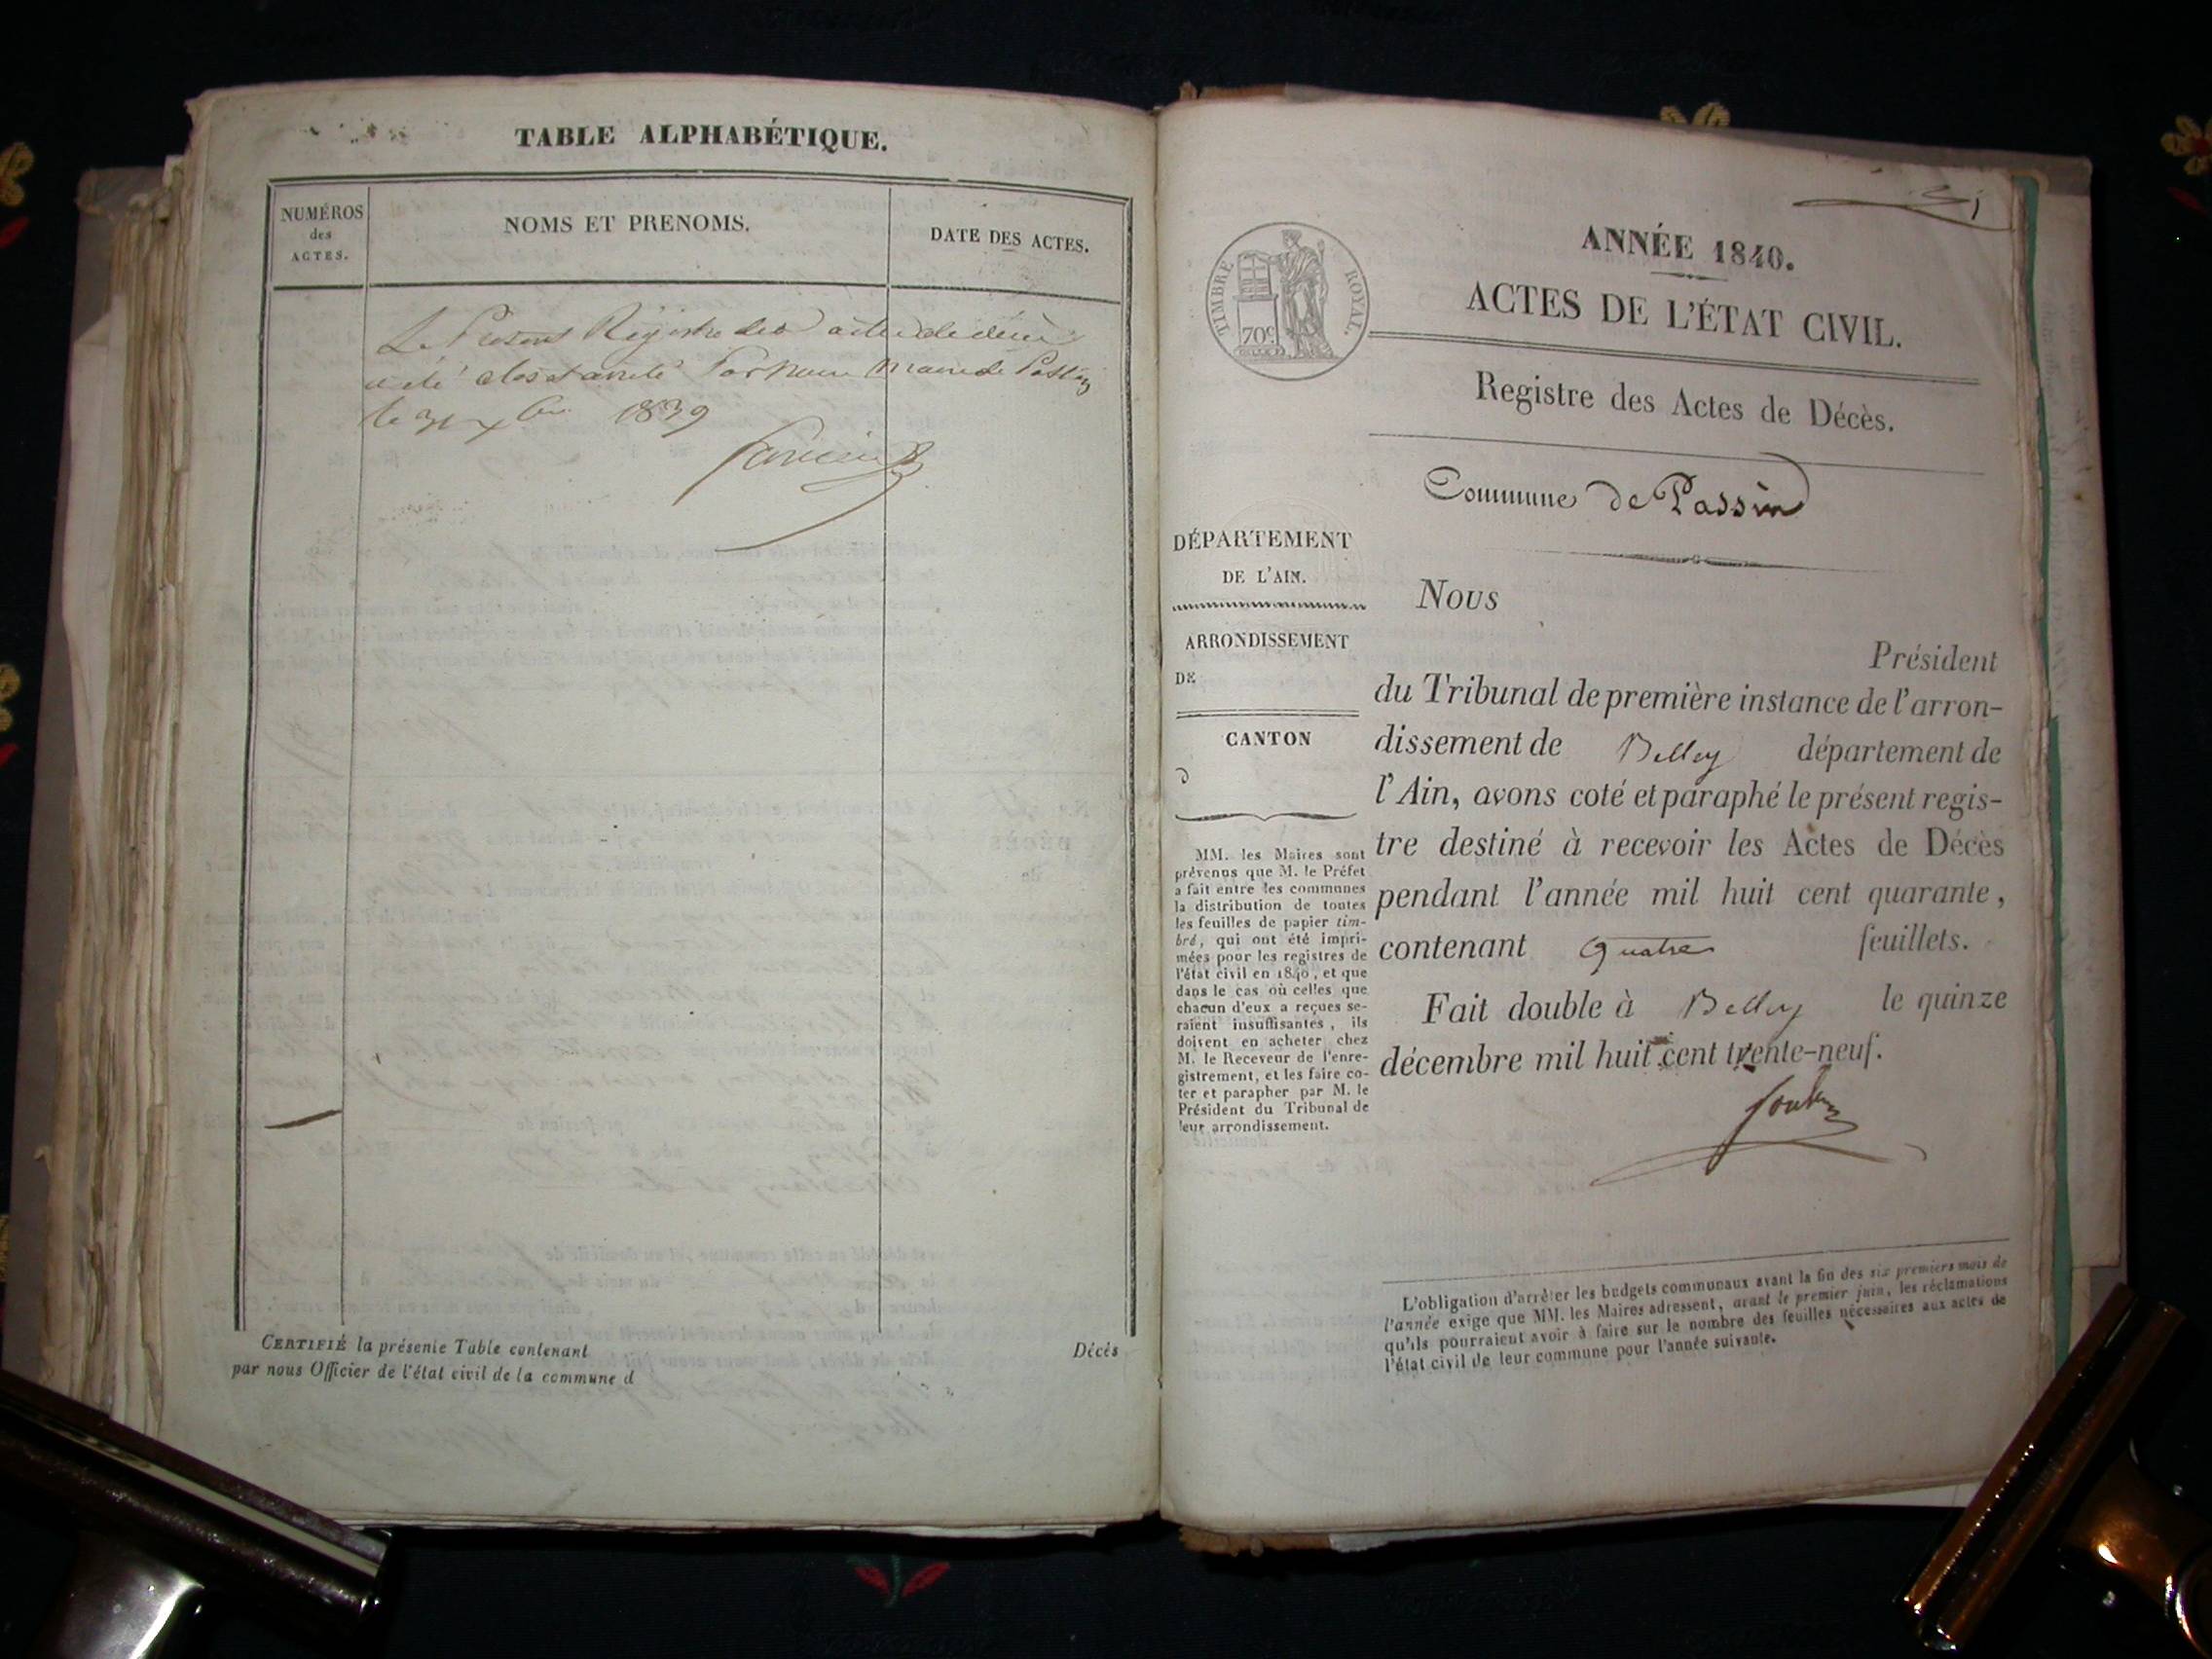 TABLE ALPHABÉTIQUE.
NUMÉROS
des
ACTES.
NOMS ET PRENOMS.
DATE DES ACTES.
Le Présent Régistre des actes de décès
a été clos et arrêté Par nous Maire de Passin
le 31 xbre 1839
CERTIFIÉ la présente Table contenant Décès
par nous Officier de l'état civil de la commune d
TIMBRE ROYAL.
70c
ANNÉE 1840.
ACTES DE L'ÉTAT CIVIL.
Registre des Actes de Décès.
Commune de Passin
DÉPARTEMENT
DE L'AIN.
ARRONDISSEMENT
DE
CANTON
D
MM. les Maires sont
prévenus que M. le Préfet
a fait entre les communes
la distribution de toutes
les feuilles de papier tim-
bré, qui ont été impri-
mées pour les registres de
l'état civil en 1840, et que
dans le cas où celles que
chacun d'eux a reçues se-
raient insuffisantes, ils
doivent en acheter chez
M. le Receveur de l'enre-
gistrement, et les faire co-
ter et parapher par M. le
Président du Tribunal de
leur arrondissement.
Nous
Président
du Tribunal de première instance de l'arron-
dissement de Belley département de
l'Ain, avons coté et paraphé le présent regis-
tre destiné à recevoir les Actes de Décès
pendant l'année mil huit cent quarante,
contenant quatre feuillets.
Fait double à Belley le quinze
décembre mil huit cent trente-neuf.
L'obligation d'arrêter les budgets communaux avant la fin des six premiers mois de
l'année exige que MM. les Maires adressent, avant le premier juin, les réclamations
qu'ils pourraient avoir à faire sur le nombre des feuilles nécessaires aux actes de
l'état civil de leur commune pour l'année suivante.